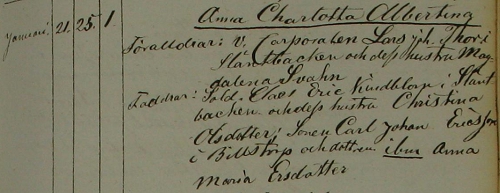 Januari. 21. 25. 1. Anna Charlotta Albertina
Föräldrar: V. Corporalen Lars Joh. Thor i
Slättbacken och dess hustru Mag-
dalena Svahn
Faddrar: Sold. Claes Eric Kindblom i Slätt
backen och dess hustru Christina
Olsdotter; Sonen Carl Johan Ericsson
i Billstorp och dottren ibm Anna
Maria Ersdotter